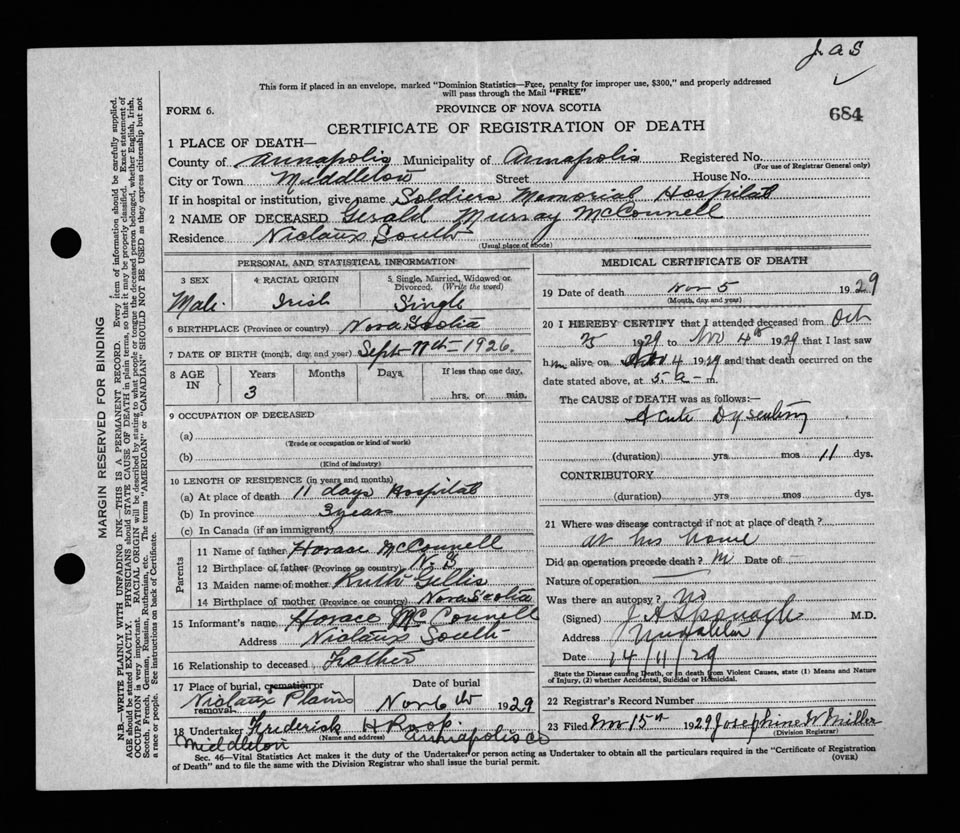 J.A.S
This form if placed in an envelope, marked "Dominion Statistics—Free, penalty for improper use, $300," and properly addressed
will pass through the Mail "FREE"
FORM 6.
PROVINCE OF NOVA SCOTIA
684
CERTIFICATE OF REGISTRATION OF DEATH
1 PLACE OF DEATH—
County of Annapolis Municipality of Annapolis Registered No.
(For use of Registrar General only)
City or Town Middleton Street House No.
If in hospital or institution, give name Soldiers Memorial Hospital
2 NAME OF DECEASED Gerald Murray McConnell
Residence Nictaux South
(Usual place of abode)
PERSONAL AND STATISTICAL INFORMATION
3 SEX 4 RACIAL ORIGIN 5 Single, Married, Widowed or Divorced. (Write the word)
Male. Irish Single
6 BIRTHPLACE (Province or country) Nova Scotia
7 DATE OF BIRTH (month, day and year) Sept 1926.
8 AGE IN Years Months Days If less than one day,
3 hrs. or min.
9 OCCUPATION OF DECEASED
(a)
(Trade or occupation or kind of work)
(b)
(Kind of industry)
10 LENGTH OF RESIDENCE (in years and months)
(a) At place of death 11 days Hospital
(b) In province 3 years
(c) In Canada (if an immigrant)
Parents
11 Name of father Horace McConnell
12 Birthplace of father (Province or country) N.S
13 Maiden name of mother Ruth Gellis
14 Birthplace of mother (Province or country) Nova Scotia
15 Informant's name Horace McConnell
Address Nictaux South
16 Relationship to deceased Father
17 Place of burial, cremation or removal Date of burial
Nictaux Plains Nov 6th 1929
18 Undertaker Frederick H Roop.
(Name and address)
Middleton Annapolis Co
MEDICAL CERTIFICATE OF DEATH
19 Date of death Nov 5 1929
(Month, day and year)
20 I HEREBY CERTIFY that I attended deceased from Oct
25 1929 to Nov 4th 1929 that I last saw
him alive on Nov 4 1929 and that death occurred on the
date stated above, at 5 a m.
The CAUSE of DEATH was as follows:—
Acute Dysentery
(duration) yrs mos 11 dys.
CONTRIBUTORY
(duration) yrs mos dys.
21 Where was disease contracted if not at place of death?
at his home
Did an operation precede death? Date of
Nature of operation
Was there an autopsy? No
(Signed) J A Sponagle M.D.
Address Middleton
Date 14/11/29
State the Disease causing Death, or in death from Violent Causes, state (1) Means and Nature
of Injury, (2) whether Accidental, Suicidal or Homicidal.
22 Registrar's Record Number
23 Filed Nov 15th 1929 Josephine W Miller
(Division Registrar)
Sec. 46—Vital Statistics Act makes it the duty of the Undertaker or person acting as Undertaker to obtain all the particulars required in the "Certificate of Registration
of Death" and to file the same with the Division Registrar who shall issue the burial permit.
(OVER)
MARGIN RESERVED FOR BINDING
N.B.—WRITE PLAINLY WITH UNFADING INK—THIS IS A PERMANENT RECORD. Every item of information should be carefully supplied.
AGE should be stated EXACTLY. PHYSICIANS should STATE CAUSE OF DEATH in plain terms, so that it may be properly classified. Exact statement of
OCCUPATION is very important. RACIAL ORIGIN will be described by stating to what people or tongue the deceased person belonged, whether English, Irish,
Scotch, French, German, Russian, Ruthenian, etc. The terms "AMERICAN" or "CANADIAN" SHOULD NOT BE USED as they express citizenship but not
a race or people. See instructions on back of Certificate.